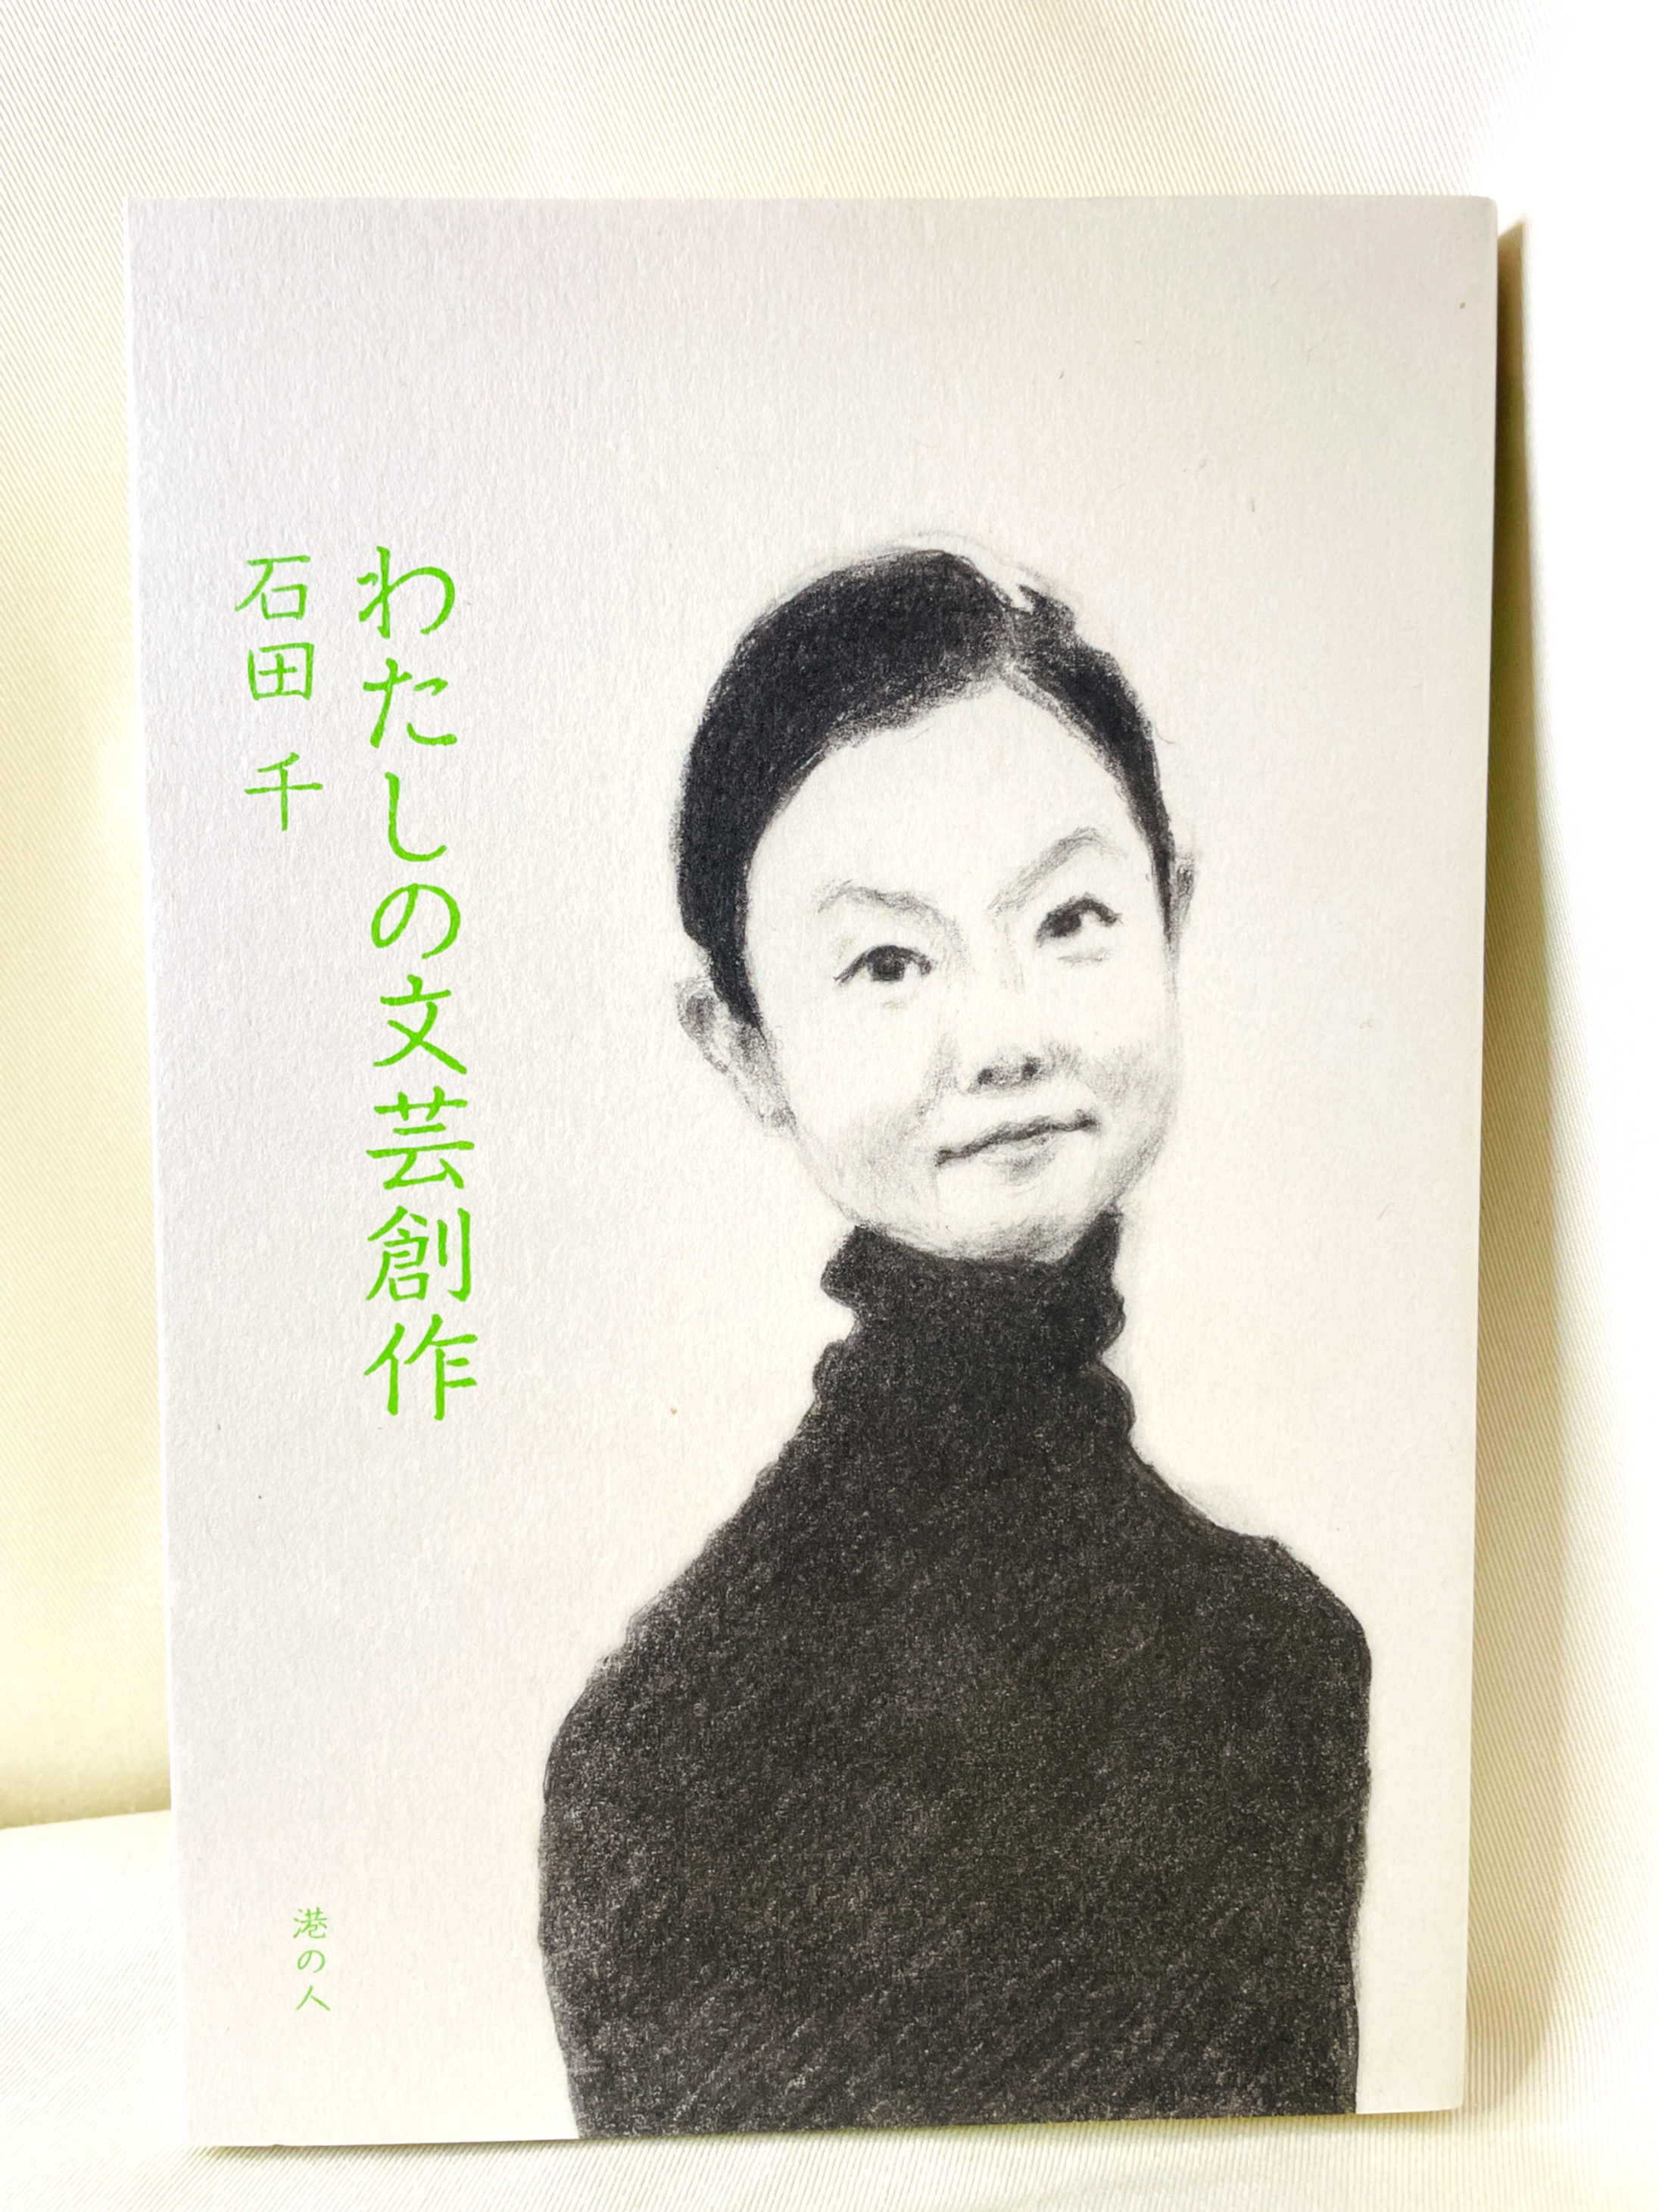 わたしの文芸創作
石田 千
港の人